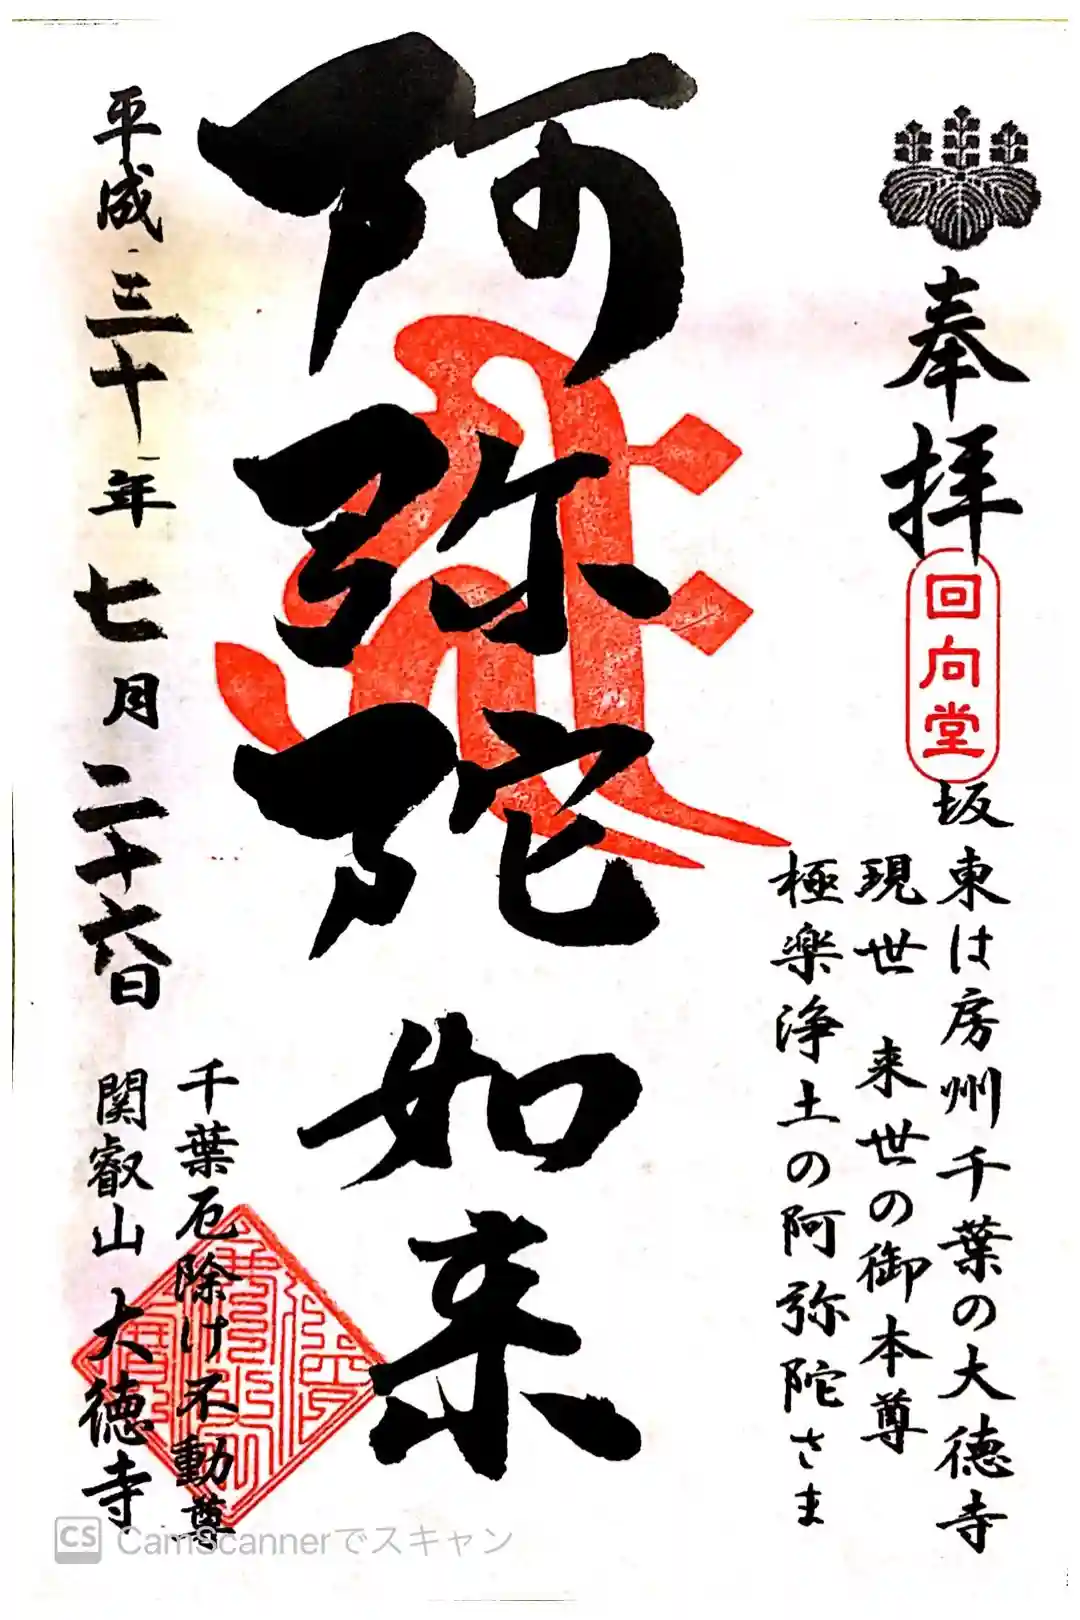 奉拝
回向堂
坂東は房州千葉の大徳寺
現世 来世の御本尊
極楽浄土の阿弥陀さま
阿弥陀如来
千葉厄除け不動尊
関叡山 大徳寺
平成三十年七月二十六日
CS CamScannerでスキャン